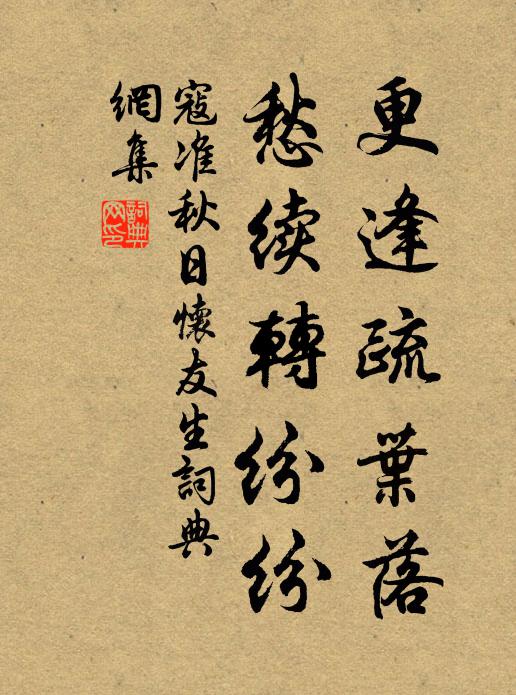 更逢疏葉落
愁续轉紛紛
寇准秋日懷友生詞典
網集
詞典
网印